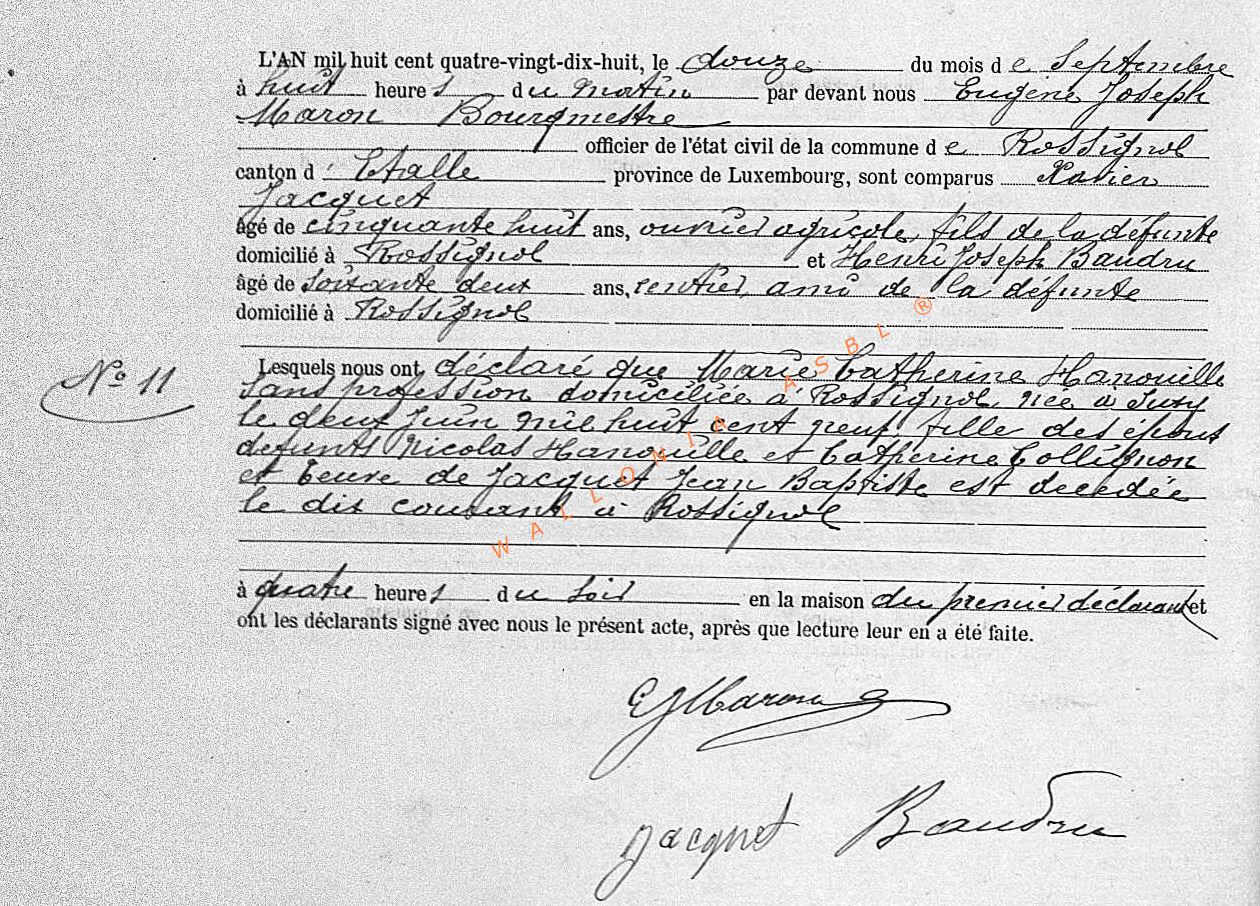 L'AN mil huit cent quatre-vingt-dix-huit, le douze du mois de Septembre
à huit heures du matin par devant nous Eugène Joseph
Maron Bourgmestre
officier de l'état civil de la commune de Rossignol
canton d'Etalle province de Luxembourg, sont comparus Xavier
Jacquet
âgé de cinquante huit ans, ouvrier agricole, fils de la défunte
domicilié à Rossignol et Henri Joseph Baudru
âgé de soixante deux ans, rentier, ami de la défunte
domicilié à Rossignol
N° 11
Lesquels nous ont déclaré que Marie Catherine Hanouille
sans profession domiciliée à Rossignol, née à Suxy
le deux Juin mil huit cent neuf, fille des époux
defunts Nicolas Hanouille et Catherine Collignon
et veuve de Jacquet Jean Baptiste est decedée
le dix courant à Rossignol
à quatre heures du soir en la maison du premier déclarant et
ont les déclarants signé avec nous le présent acte, après que lecture leur en a été faite.
EJMaron
Jacquet Baudru
WALLONIA ASBL ®